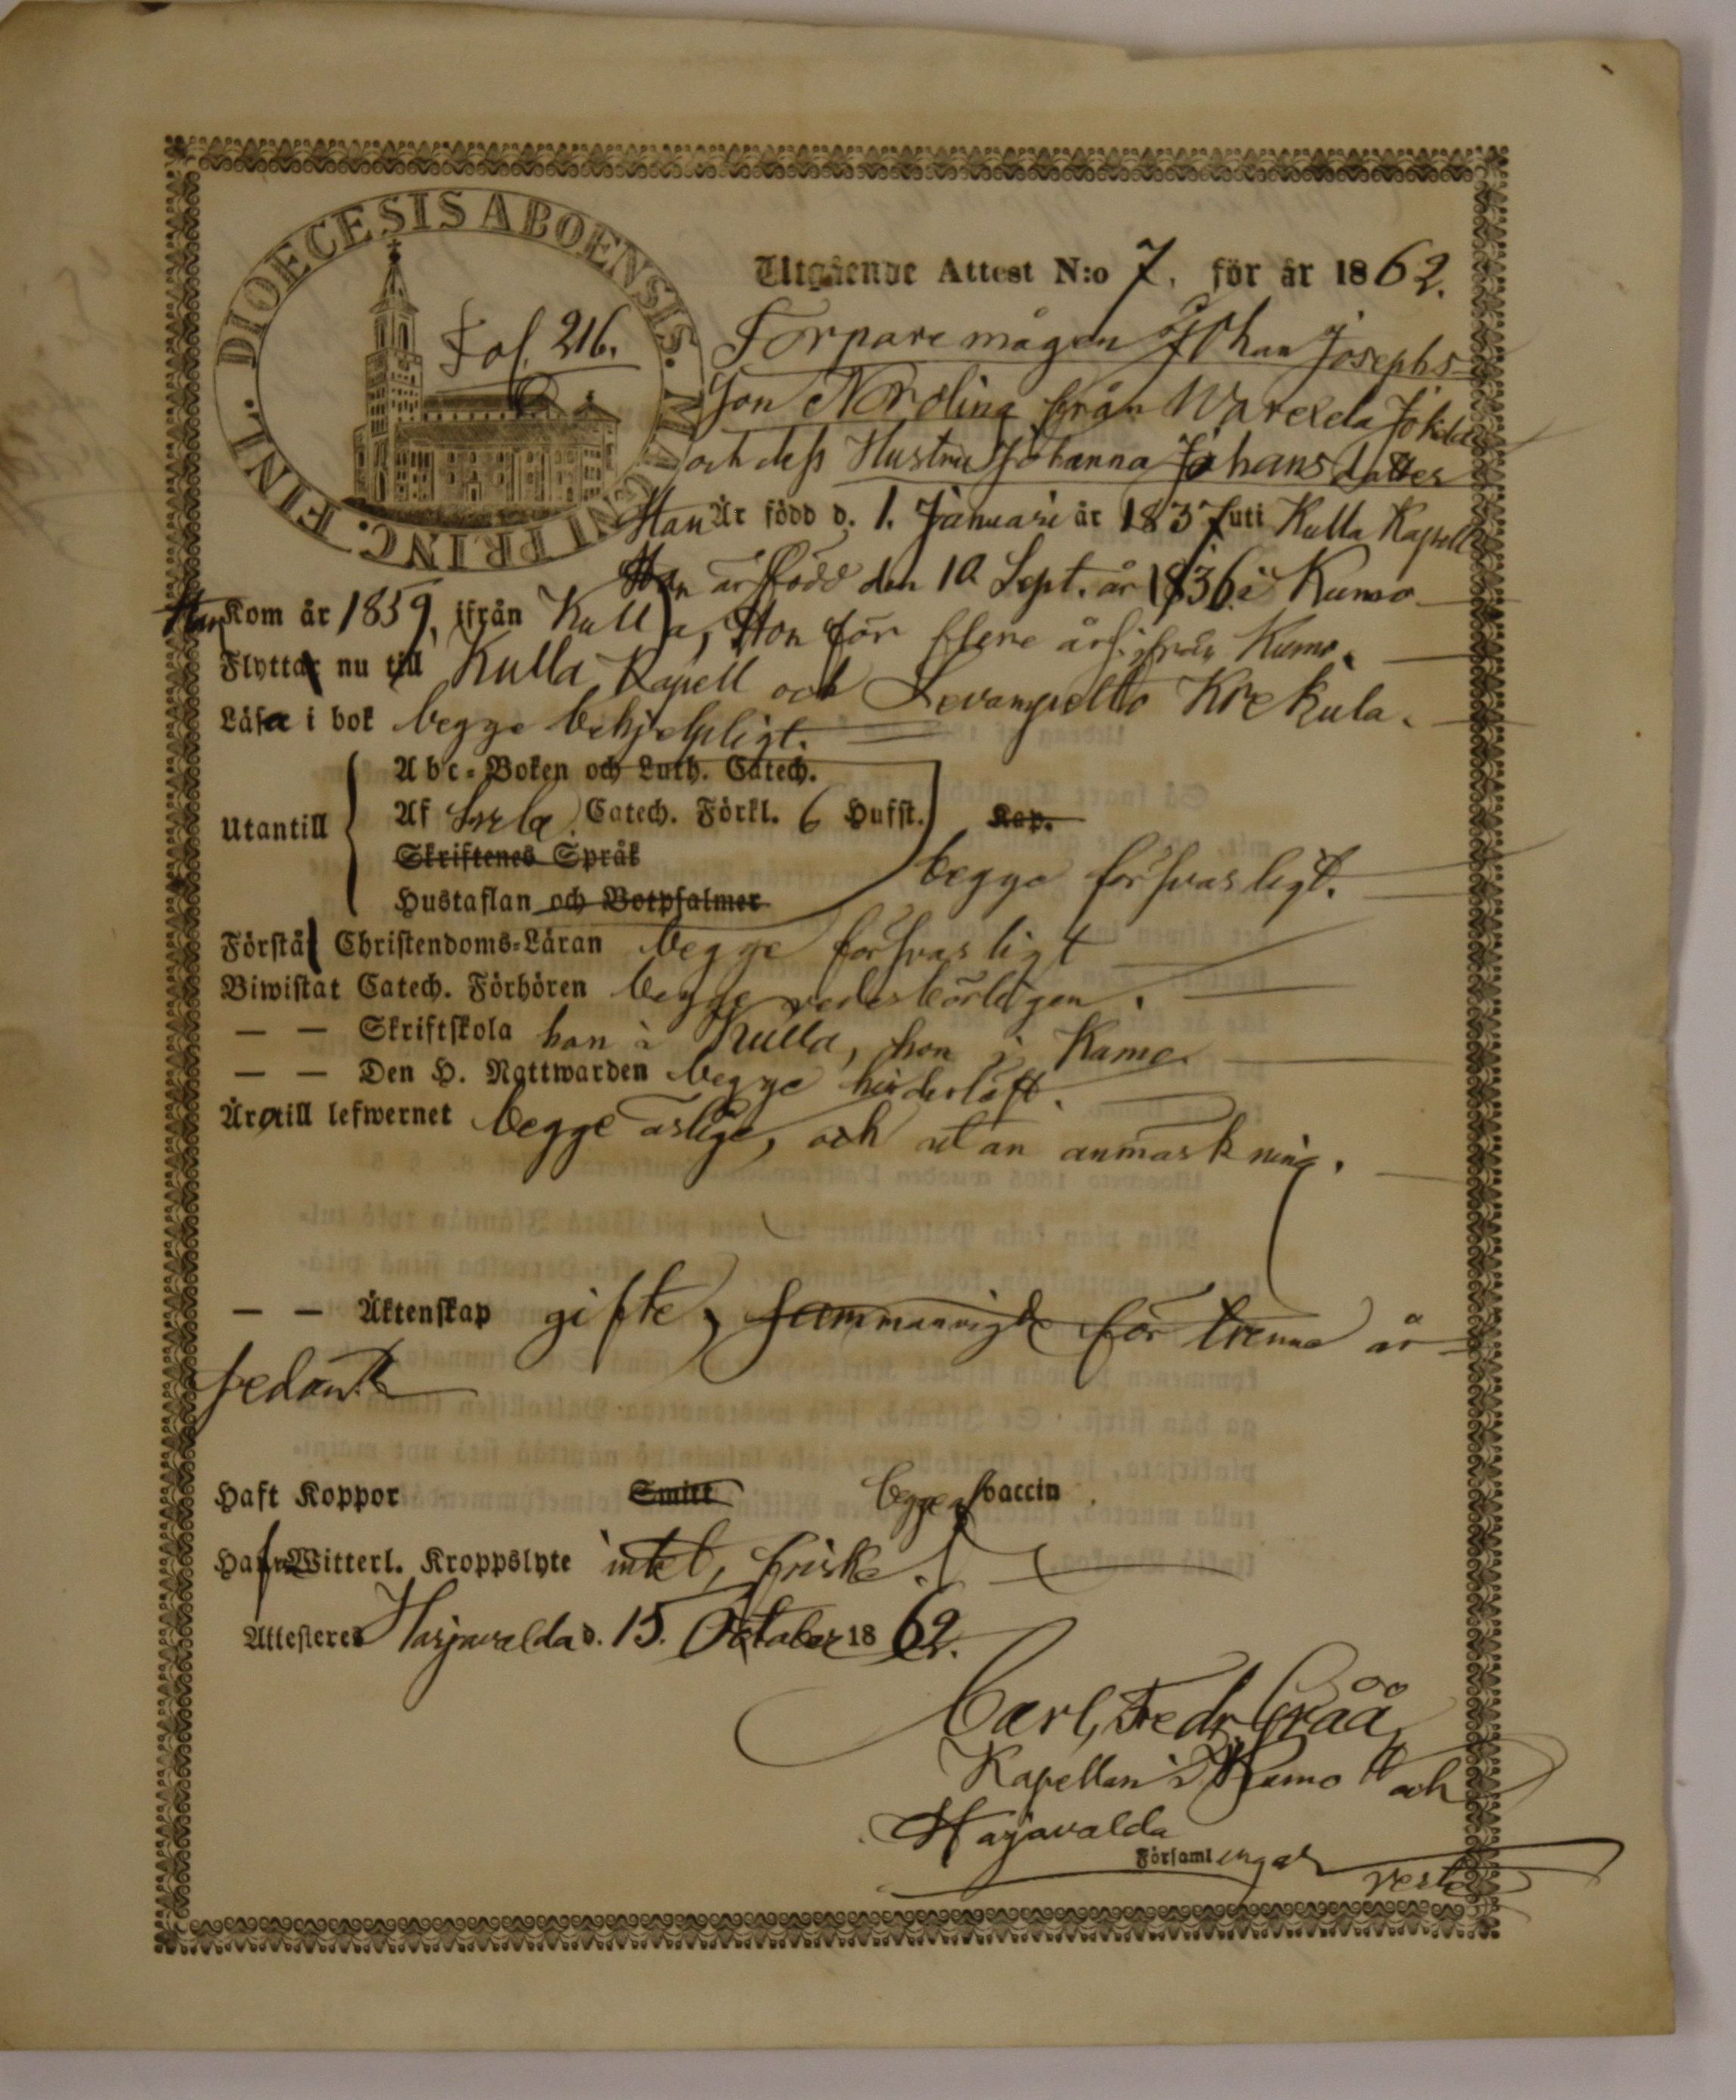 DIOECESIS ABOENSIS. MAGNI PRINC. FINL.
Fol. 216.
Utgående Attest N:o 7. för år 1862.
Torparemågen Johan Josephs-
son Nordling från
och dess Hustru Johanna Johansdotter
Han Är född d. 1. Januari år 1837 uti Kulla Kapell
Hon är född den 10 Sept. år 1836 i Kumo
Han Kom år 1859, ifrån Kulla, Hon för flere år ifrån Kumo.
Flytta nu till Kulla Kapell och Krekula.
Läsa i bok begge behjelpligt.
Abc-Boken och Luth. Catech.
Utantill
Af Catech. Förkl. 6 Hufst. Kap.
Skriftenes Språk
begge försvarligt.
Hustaflan och Botpsalmer
Förstå Christendoms-Läran begge försvarligt
Biwistat Catech. Förhören begge vederbörligen.
— — Skriftskola han i Kulla, hon i Kumo.
— — Den H. Nattwarden begge hinderlöst.
Äro till lefwernet begge ärlige, och utan anmärkning.
— — Äktenskap gifte, sammanvigde för trenne år
sedan.
Haft Koppor Smitt begge vaccin
Hafva Witterl. Kroppslyte intet, friske.
Attesteres Harjavalda d. 15. October 1862.
Carl Fredr. Gråå,
Kapellan i Kumo och
Harjavalda
Församlingar